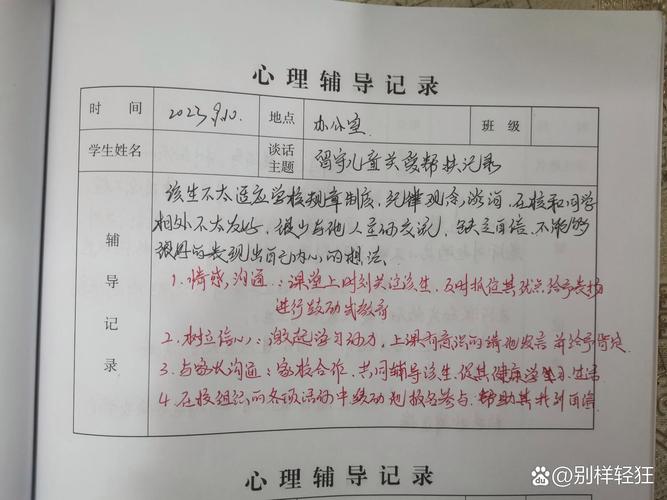 心理辅导记录
时 间 2023.9.10. 地点 办公室 班 级
学生姓名 谈话主题 留守儿童关爱帮扶记录
辅导记录
该生不太适应学校规章制度,纪律观念淡泊,在校和同学
相处不太友好,很少与他人主动交流,缺乏自信,不能够
很好的表现出自己内心的想法。
1.情感沟通:课堂上时刻关注该生,及时抓住其优点给予表扬
进行鼓励式教育
2.树立信心:激起学习动力,上课有意识的请他发言并给予肯定
3.与家长沟通:家校合作,共同辅导该生,促其健康学习、生活
4.在校组织的各项活动中鼓励他报名参与 帮助其找到自信
心理辅导记录
@别样轻狂